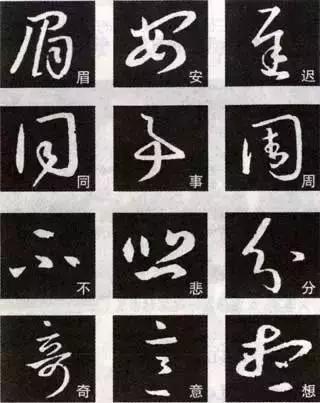 眉 安 迟
同 事 周
不 悲 分
奇 意 想